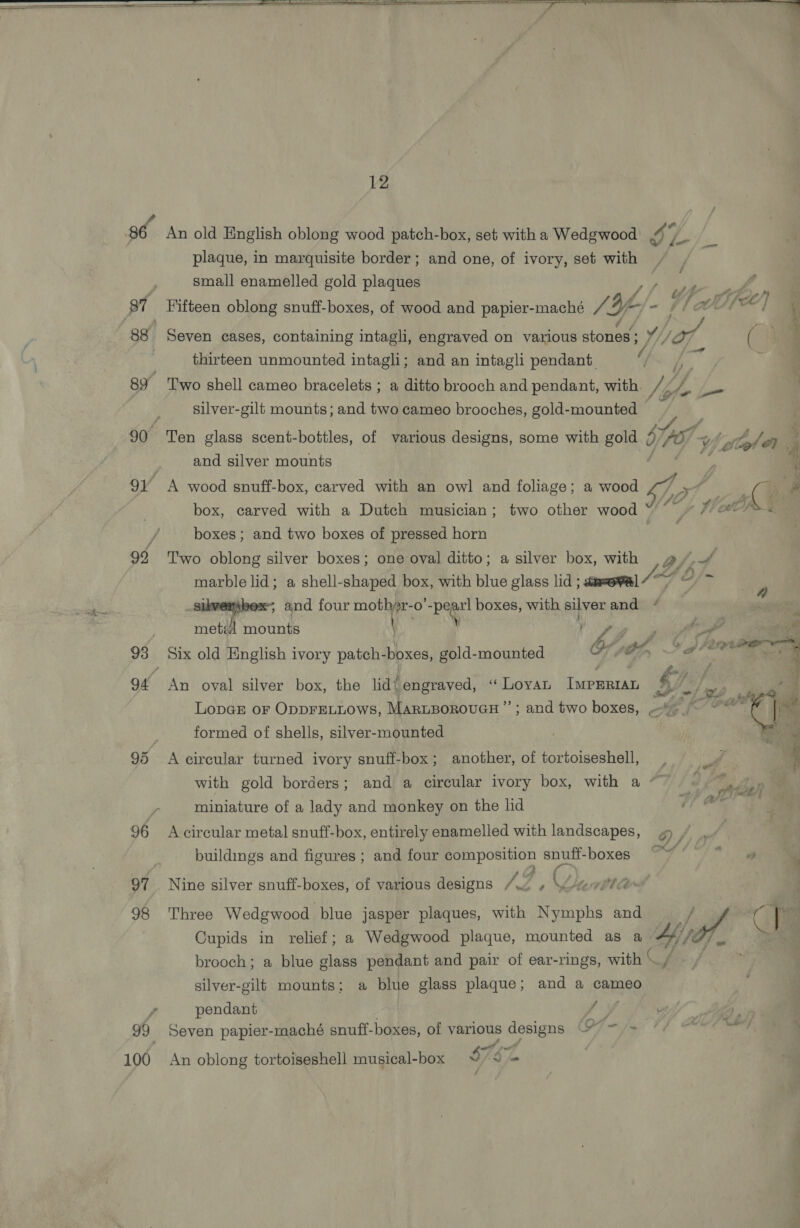 12
86 An old English oblong wood patch-box, set with a Wedgwood
plaque, in marquisite border; and one, of ivory, set with
small enamelled gold plaques
87 Fifteen oblong snuff-boxes, of wood and papier-maché
88 Seven cases, containing intagli, engraved on various stones;
thirteen unmounted intagli; and an intagli pendant
89 Two shell cameo bracelets; a ditto brooch and pendant, with
silver-gilt mounts; and two cameo brooches, gold-mounted
90 Ten glass scent-bottles, of various designs, some with gold
and silver mounts
91 A wood snuff-box, carved with an owl and foliage; a wood
box, carved with a Dutch musician; two other wood
boxes; and two boxes of pressed horn
92 Two oblong silver boxes; one oval ditto; a silver box, with
marble lid; a shell-shaped box, with blue glass lid;
and four mother-o'-pearl boxes, with silver and
metal mounts
93 Six old English ivory patch-boxes, gold-mounted
94 An oval silver box, the lid engraved, “LOYAL IMPERIAL
LODGE OF ODDFELLOWS, MARLBOROUGH”; and two boxes,
formed of shells, silver-mounted
95 A circular turned ivory snuff-box; another, of tortoiseshell,
with gold borders; and a circular ivory box, with a
miniature of a lady and monkey on the lid
96 A circular metal snuff-box, entirely enamelled with landscapes,
buildings and figures; and four composition snuff-boxes
97 Nine silver snuff-boxes, of various designs
98 Three Wedgwood blue jasper plaques, with Nymphs and
Cupids in relief; a Wedgwood plaque, mounted as a
brooch; a blue glass pendant and pair of ear-rings, with
silver-gilt mounts; a blue glass plaque; and a cameo
pendant
99 Seven papier-maché snuff-boxes, of various designs
100 An oblong tortoiseshell musical-box